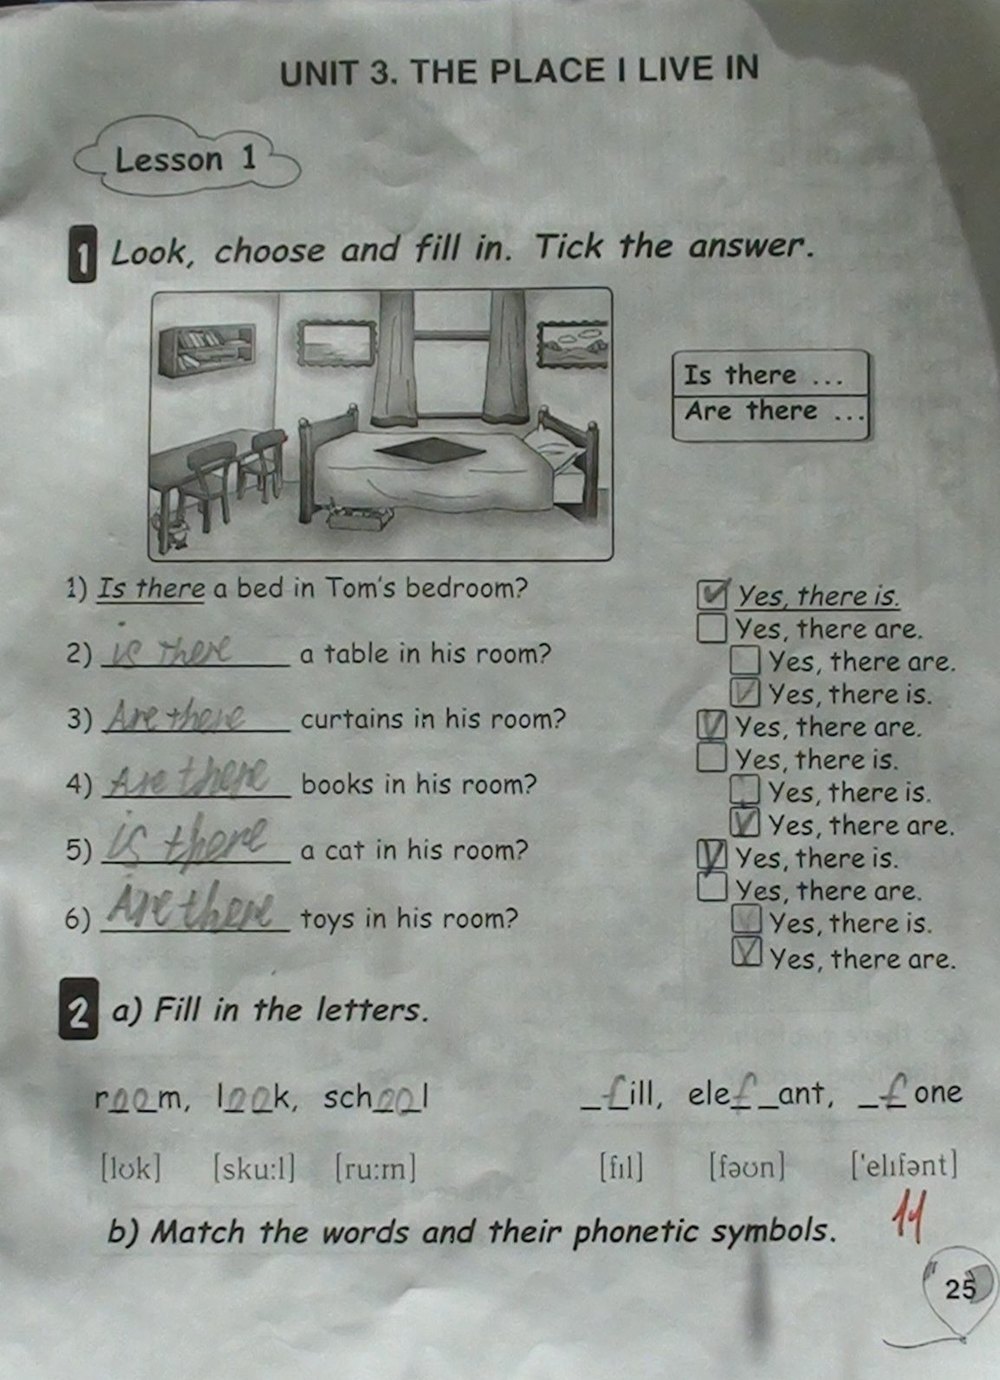 UNIT 3. THE PLACE I LIVE IN
Lesson 1
1 Look, choose and fill in. Tick the answer.
Is there ...
Are there ...
1) Is there a bed in Tom's bedroom?
Yes, there is.
Yes, there are.
2) is there a table in his room?
Yes, there are.
Yes, there is.
3) Are there curtains in his room?
Yes, there are.
Yes, there is.
4) Are there books in his room?
Yes, there is.
Yes, there are.
5) is there a cat in his room?
Yes, there is.
Yes, there are.
6) Are there toys in his room?
Yes, there is.
Yes, there are.
2 a) Fill in the letters.
room, look, school
_fill, elef_ant, _fone
[lʊk] [sku:l] [ru:m]
[fɪl] [fəʊn] ['elɪfənt]
b) Match the words and their phonetic symbols.
11
25